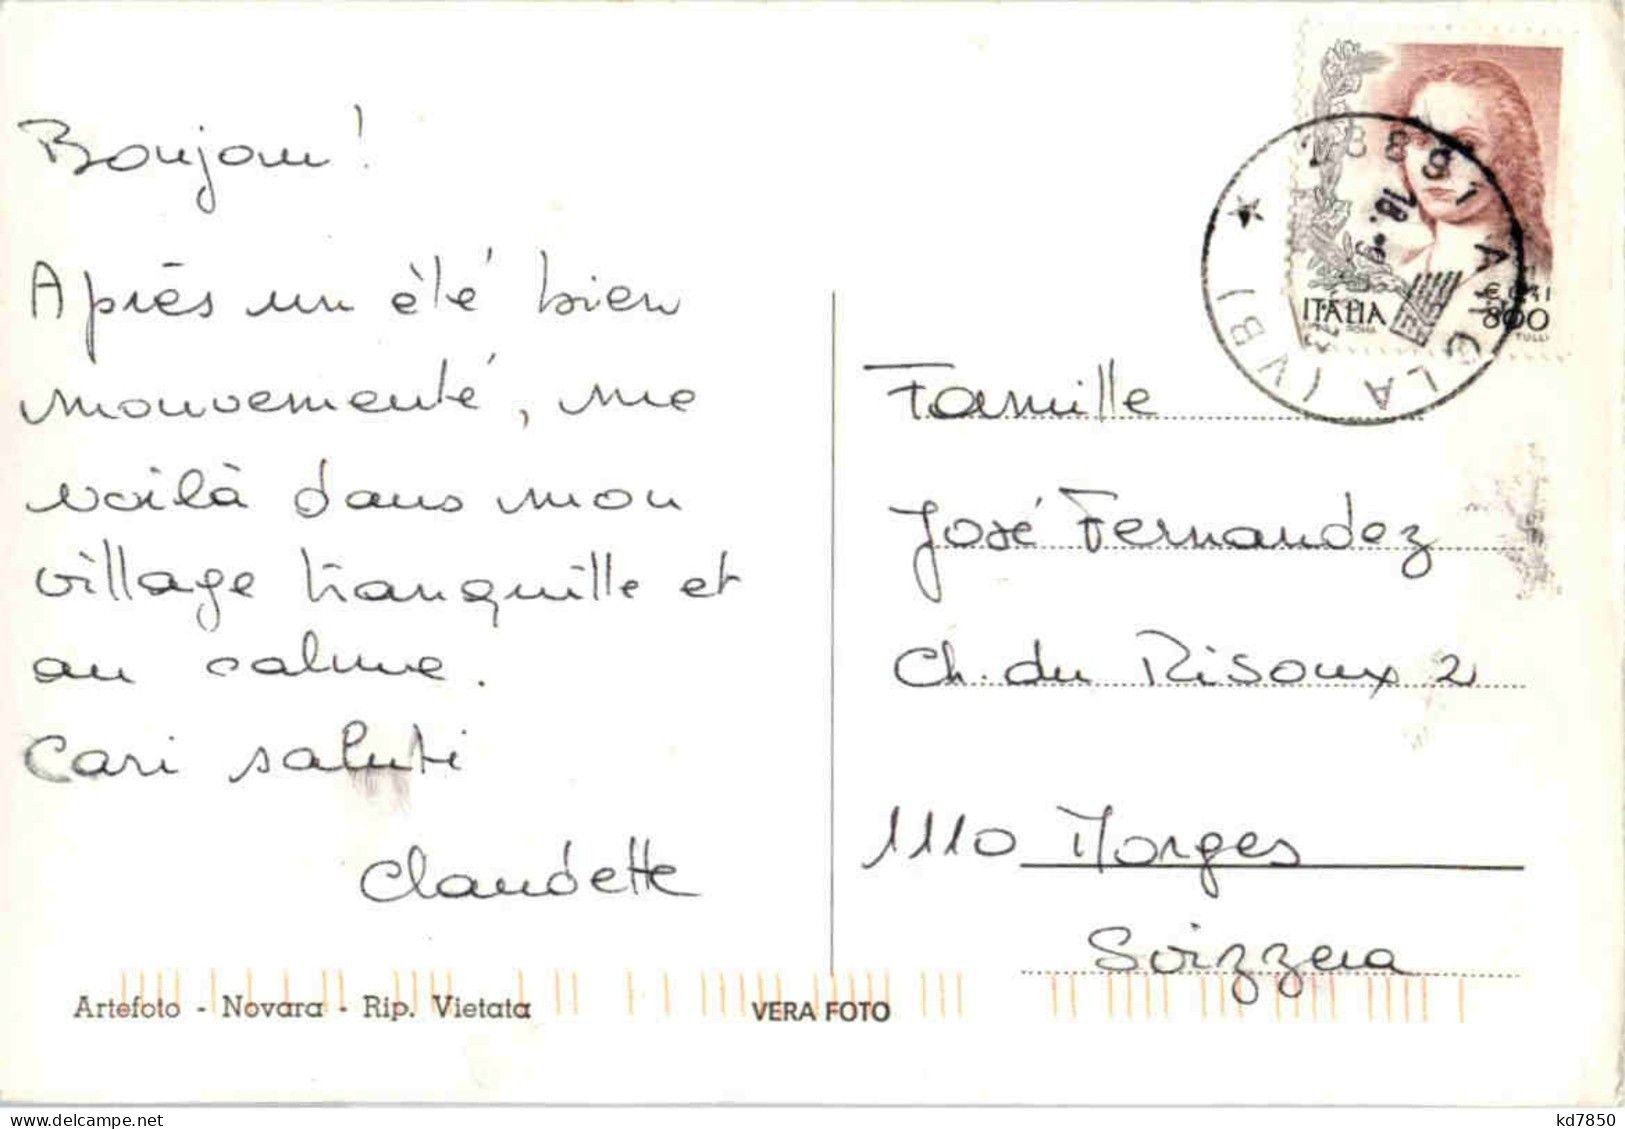 Bonjour!
Après un été bien
mouvementé, me
voilà dans mon
village tranquille et
au calme.
Cari saluti
Claudette
Famille
José Fernandez
Ch. du Risoux 2
1110 Morges
Svizzera
28891 AIZOLA (VB) ★
18.
ITALIA
800
Artefoto - Novara - Rip. Vietata
VERA FOTO
kd7850